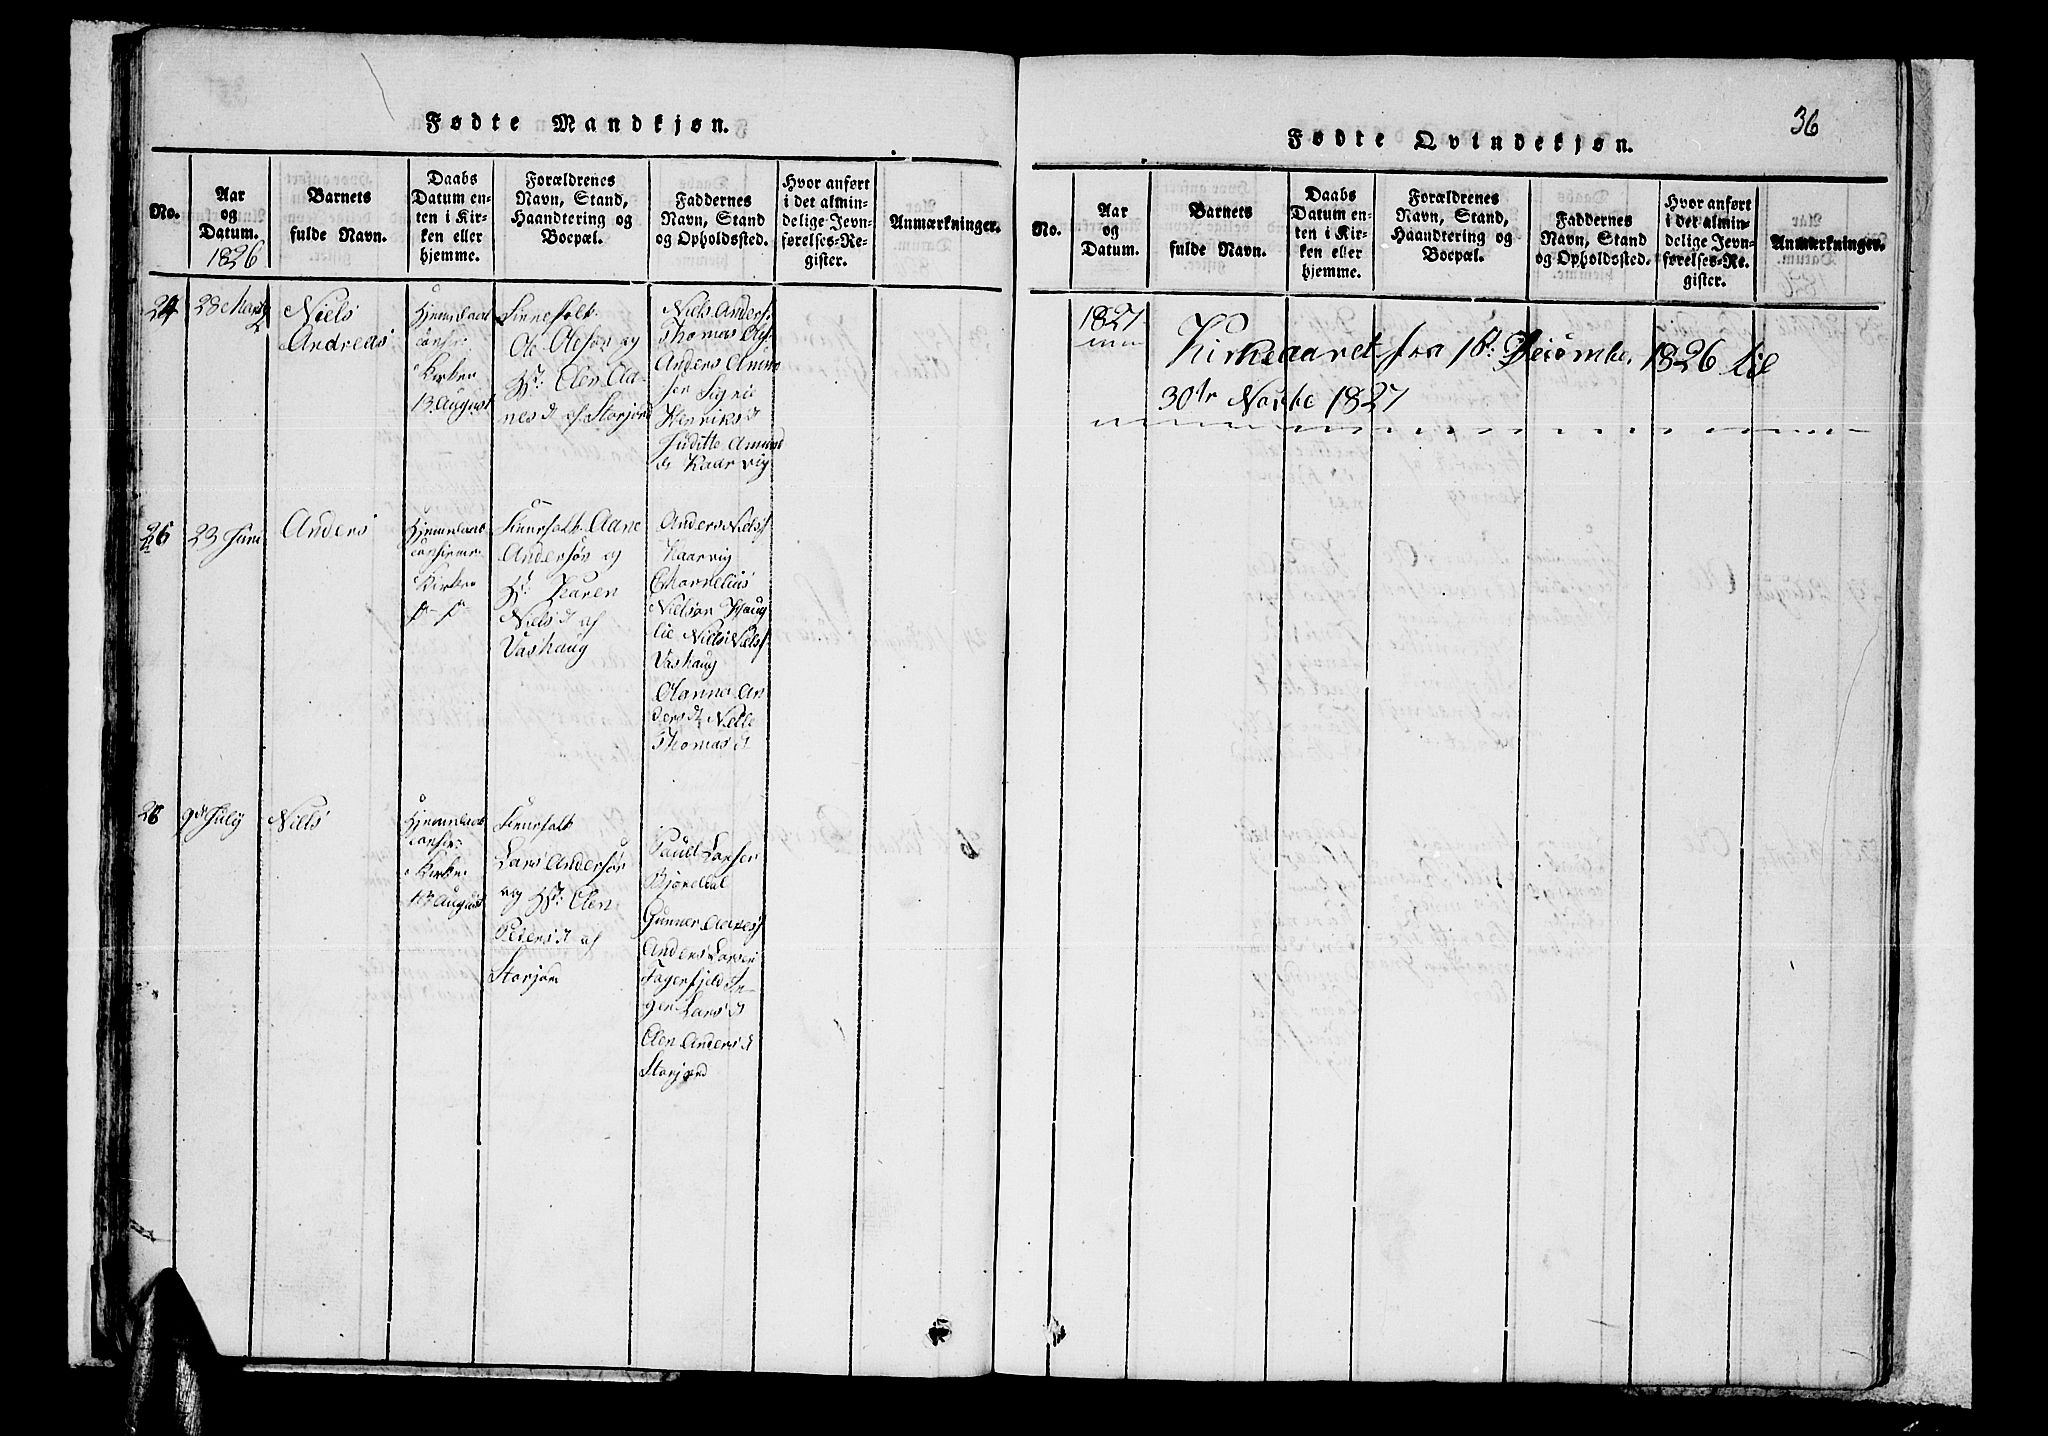 Fødte Mandkjøn.
No.
Aar
og
Datum.
1826
Barnets
fulde Navn.
Daabs
Datum en-
ten i Kir-
ken eller
hjemme.
Forældrenes
Navn, Stand,
Haandtering og
Boepæl.
Faddernes
Navn, Stand
og Opholdssted.
Hvor anført
i det almin-
delige Jevn-
førelses-Re-
gister.
Anmærkninger.
24
28 Marty
Niels
Andreas
Hjemmedøbt
confir:
i Kirken
13 August
Finnefolk
Ole Olesøn og
Hst: Elen Aa-
nes d af Storjord
Niels Anders:
Thomas
Anders Amun
Signe
Henriks d
Juditte Amund
d Kaarvig
23 Juni
Anders
Hjemmedøbt
confirmer:
Kirken
Finnefolk Aane
Andersøn og
Hst: Karen
Niels d af
Vashaug
Anders Niels
Kaarvig
Chornelius
Nielsøn Houg
lie Niels Niels
Vashaug
Hanna An
ders d Nille
Thomas d
28
9d July
Niels
Hjemmedøbt
confir:
i Kirken
13 August
Finnefolk
Lars Andersøn
og Hst: Elen
Peders d af
Storjord
Paul Larsen
Bjørndal
Gunner Aanes
Anders Larsen
Fagerfjeld In-
ger Lars d
Elen Anders d
Storjord
36
Fødte Qvindekjøn.
No.
Aar
og
Datum.
Barnets
fulde Navn.
Daabs
Datum en-
ten i Kir-
ken eller
hjemme.
Forældrenes
Navn, Stand,
Haandtering og
Boepæl.
Faddernes
Navn, Stand
og Opholdssted.
Hvor anført
i det almin-
delige Jevn-
førelses-Re-
gister.
Anmærkninger.
1827
Kirkeaaret fra 1st: Decembe. 1826 til
30te Novbe 1827